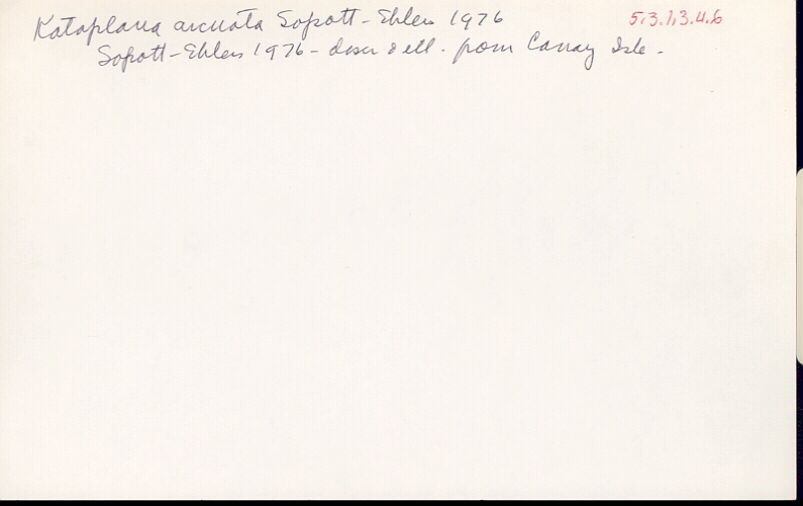 Kataplana arcuata Sopott-Ehlers 1976 5.3.1.3.4.6
Sopott-Ehlers 1976 - descr & ill. from Canary Isle.